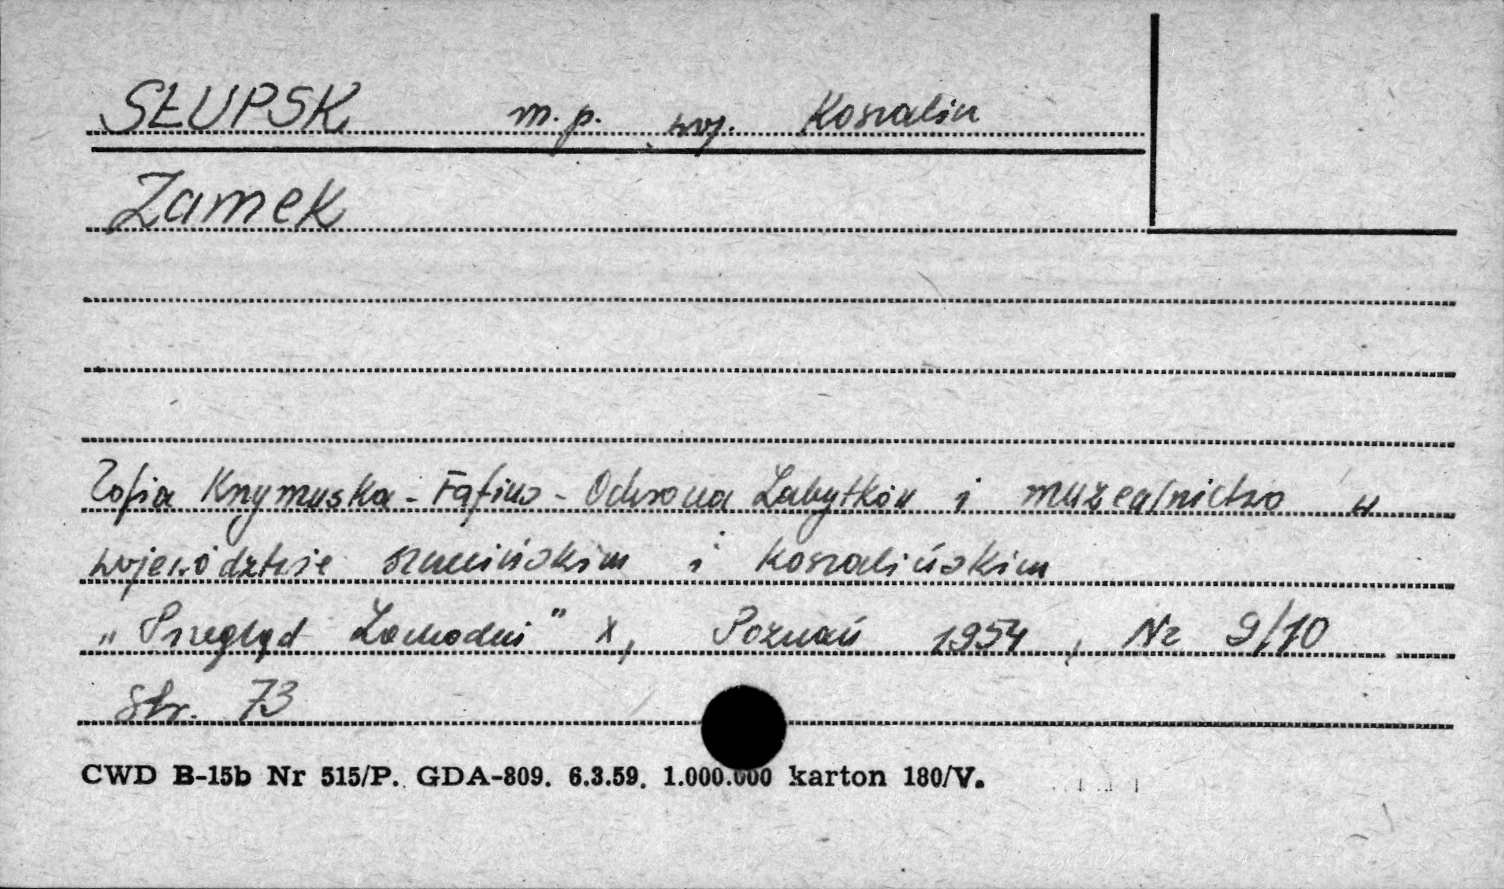 SŁUPSK m.p. woj. Koszalin
Zamek
Zofia Krzymuska-Fafius - Ochrona Zabytków i muzealnictwo w
województwie szczecińskim i koszalińskim
„Przegląd Zachodni" X, Poznań 1954, Nr 9/10
Str. 73
CWD B-15b Nr 515/P. GDA-809. 6.3.59. 1.000.000 karton 180/V.